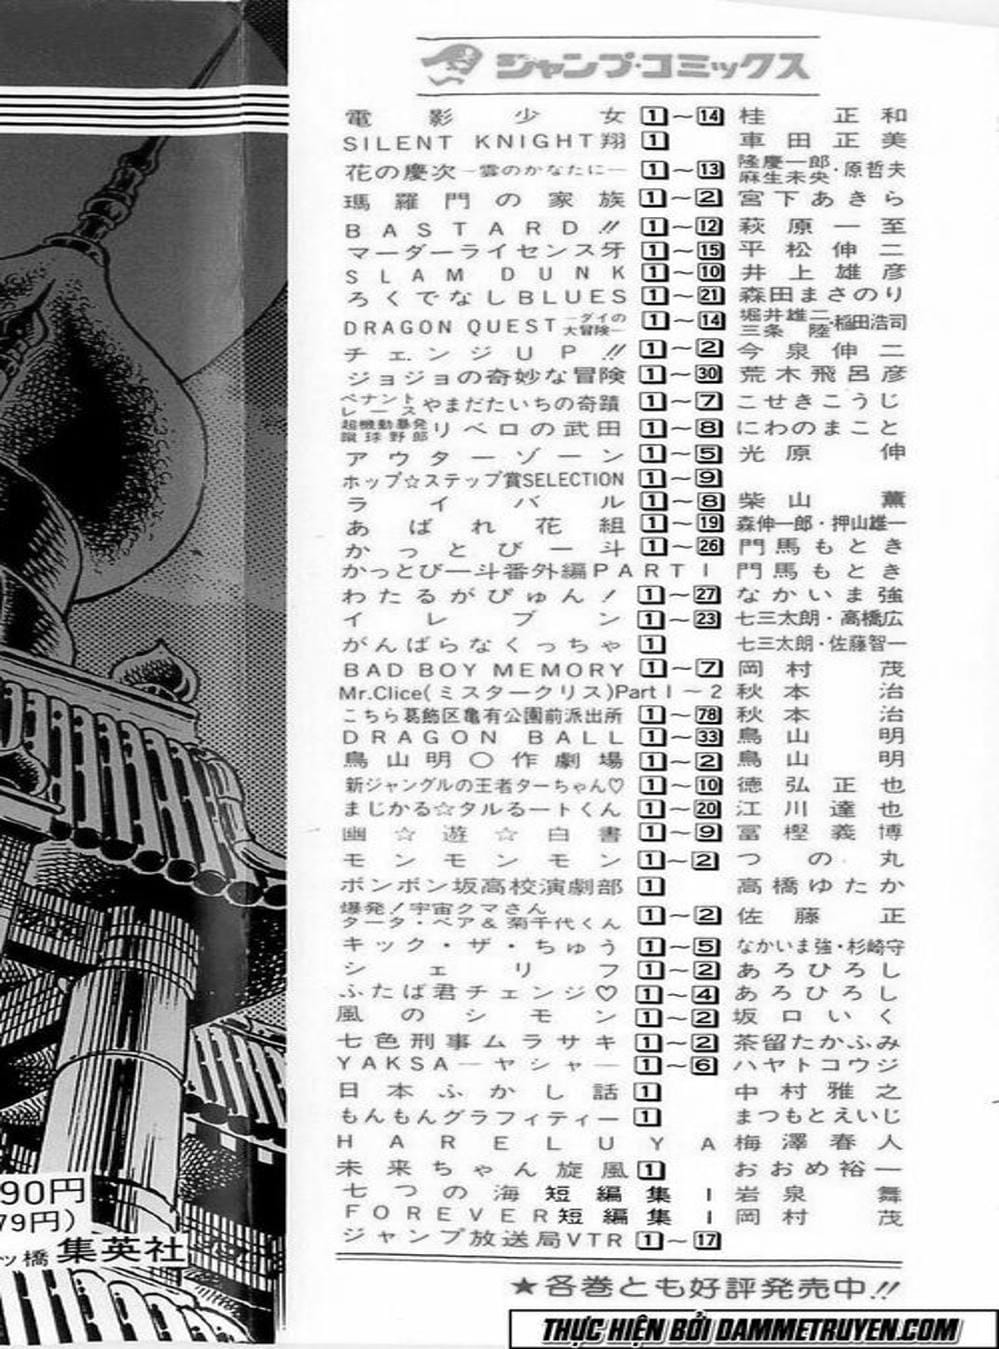 ジャンプ・コミックス
電影少女 1～14 桂正和
SILENT KNIGHT翔 1 車田正美
花の慶次－雲のかなたに－ 1～13 隆慶一郎 麻生未央・原哲夫
瑪羅門の家族 1～2 宮下あきら
BASTARD!! 1～12 萩原一至
マーダーライセンス牙 1～15 平松伸二
SLAM DUNK 1～10 井上雄彦
ろくでなしBLUES 1～21 森田まさのり
DRAGON QUEST－ダイの大冒険－ 1～14 堀井雄二 三条陸・稲田浩司
チェンジUP!! 1～2 今泉伸二
ジョジョの奇妙な冒険 1～30 荒木飛呂彦
ペナントレースやまだたいちの奇蹟 1～7 こせきこうじ
超機動暴発蹴球野郎リベロの武田 1～8 にわのまこと
アウターゾーン 1～5 光原伸
ホップ☆ステップ賞SELECTION 1～9
ライバル 1～8 柴山薫
あばれ花組 1～19 森伸一郎・押山雄一
かっとび一斗 1～26 門馬もとき
かっとび一斗番外編PART I 門馬もとき
わたるがぴゅん! 1～27 なかいま強
イレブン 1～23 七三太朗・高橋広
がんばらなくっちゃ 1 七三太朗・佐藤智一
BAD BOY MEMORY 1～7 岡村茂
Mr.Clice(ミスタークリス)Part 1～2 秋本治
こちら葛飾区亀有公園前派出所 1～78 秋本治
DRAGON BALL 1～33 鳥山明
鳥山明○作劇場 1～2 鳥山明
新ジャングルの王者ターちゃん♡ 1～10 徳弘正也
まじかる☆タルるートくん 1～20 江川達也
幽☆遊☆白書 1～9 冨樫義博
モンモンモン 1～2 つの丸
ボンボン坂高校演劇部 1 高橋ゆたか
爆発!宇宙クマさん
タータ・ベア&菊千代くん 1～2 佐藤正
キック・ザ・ちゅう 1～5 なかいま強・杉崎守
シェリフ 1～2 あろひろし
ふたば君チェンジ♡ 1～4 あろひろし
風のシモン 1～2 坂口いく
七色刑事ムラサキ 1～2 茶留たかふみ
YAKSA－ヤシャ－ 1～6 ハヤトコウジ
日本ふかし話 1 中村雅之
もんもんグラフィティー 1 まつもとえいじ
HARELUYA 梅澤春人
未来ちゃん旋風 1 おおめ裕一
七つの海 短編集 I 岩泉舞
FOREVER 短編集 I 岡村茂
ジャンプ放送局VTR 1～17
★各巻とも好評発売中!!
90円
79円)
ツ橋 集英社
THỰC HIỆN BỞI DAMMETRUYEN.COM